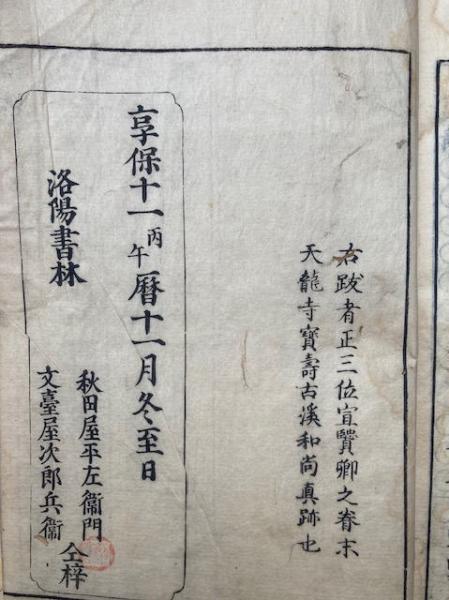 右跋者正三位宜賢卿之眷末
天龍寺寶壽古溪和尚真跡也
享保十一丙午暦十一月冬至日
洛陽書林
秋田屋平左衞門
文臺屋次郎兵衞
仝梓